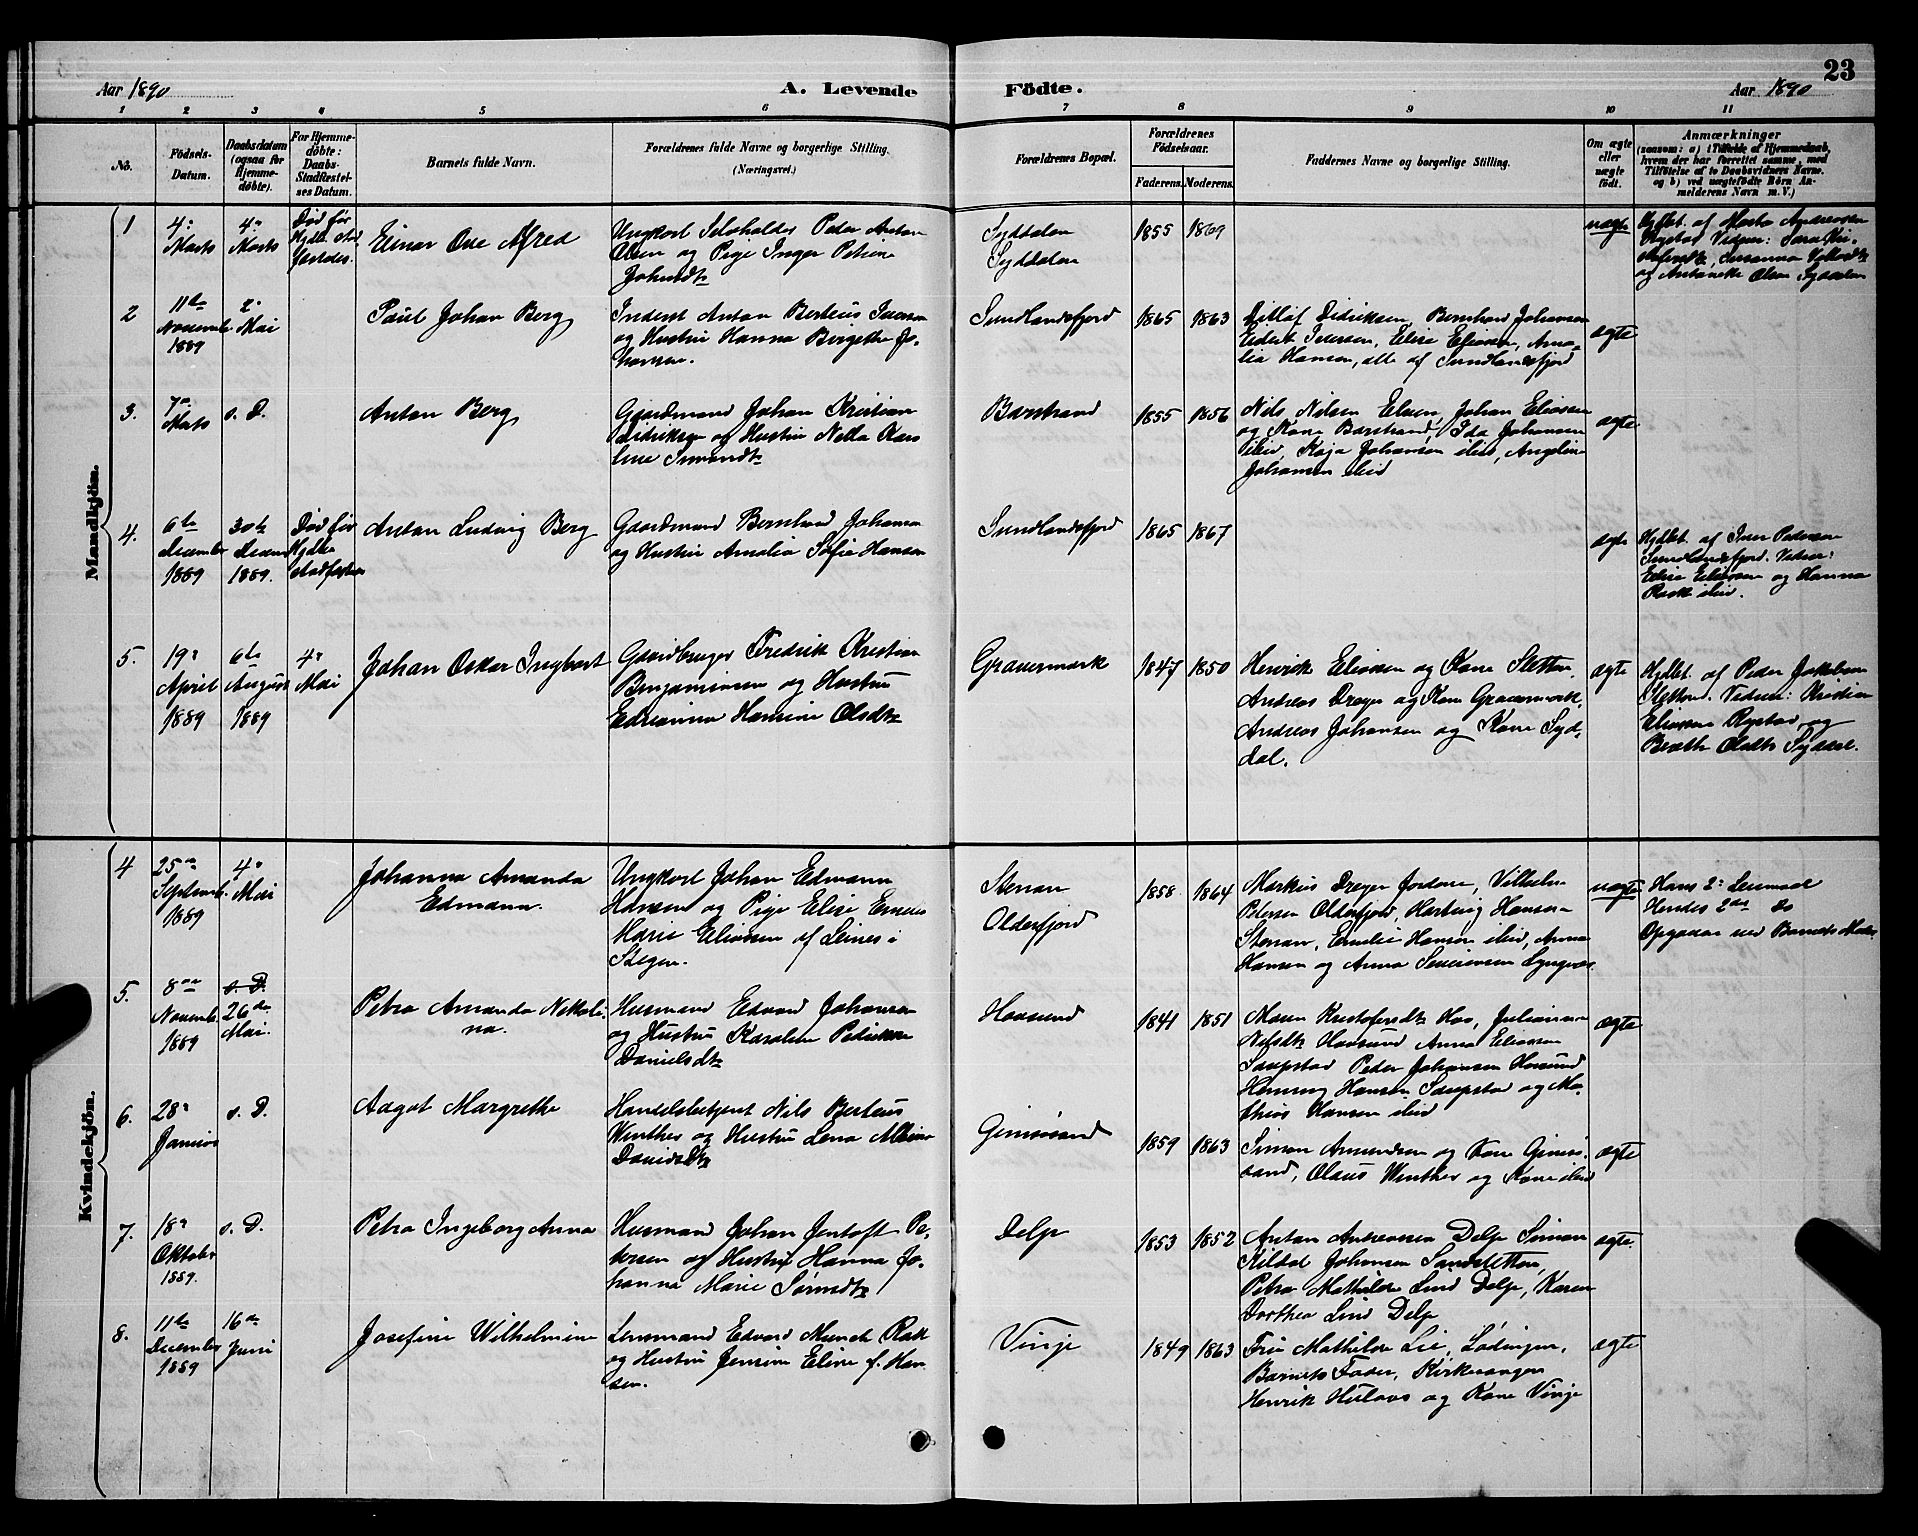 23
Aar 1890 A. Levende Fødte. Aar 1890
1 2 3 4 5 6 7 8 9 10 11
No.
Fødsels-
Datum.
Daabsdatum
(ogsaa for
Hjemme-
døbte).
For Hjemme-
døbte:
Daabs-
Stadfæstel-
ses Datum.
Barnets fulde Navn.
Forældrenes fulde Navne og borgerlige Stilling.
(Næringsvei.)
Forældrenes Bopæl.
Forældrenes
Fødselsaar.
Faderens. Moderens.
Faddernes Navne og borgerlige Stilling.
Om ægte
eller
uægte
født.
Anmærkninger
(saasom: a) i Tilfælde af Hjemmedaab,
hvem der har forrettet samme, med
Tilføielse af to Daabsvidners Navne.
og b) ved uægtefødte Børn An-
melderens Navn m. V.)
Mandkjön.
1
4de
Marts
4de
Marts
Död för
Hjdbs. Stad
festedes.
Einar Ove Alfred
Ungkarl Selvholdes Peder Anton
Olsen og Pige Inger Petrine
Johnsdtr
Syddalen
Syddalen
1855 1869
uægte
Hjdbt. af Marta Andreassen
Rystad Vidner:
og Antonette Olsen Syddalen
2
11te
Novemb.
1889
2
Mai
Paul Johan Berg
Inderst Anton Berteus Iversen
og Hustru Hanna Birgitte Jo-
hansen.
Sundlandsfjord
1865 1863
Ditlof Didriksen, Bernhard Johansen
Eidert Iversen, Elise Eliassen, Ama-
lia Hansen, alle af Sundlandsfjord
ægte
3.
7de
Marts
s. D.
Anton Berg
Gaardmand Johan Kristian
Didriksen og Hustru Nella Kar-
line Simondtr
Barstrand
1855 1856
Nils Nilsen Elven, Johan Eliassen
og Kone Barstrand, Ida Johansen
ibid, Kaja Johansen ibid, Angelin
Johansen ibid
ægte
4.
6te
December
1889
30te
Decem
1889.
Död för
Hjdbs
stadfestes
Anton Ludvig Berg
Gaardmand Bernhard Johansen
og Hustru Amalia Sofie Hansen
Sundlandsfjord
1865 1867
ægte
Hjdbt. af Iver Pedersen
Sundlandsfjord. Vidner:
Elise Eliassen og Hanna
Rask ibid.
5.
19de
April
1889
6te
August
1889
4de
Mai
Johan Oskar Ingbert
Gaardbruger Fredrik Kristian
Benjaminsen og Hustru
Edrianna Hansine Olsdtr
Gravermark
1847 1850
Henrik Eliassen og Kone Sletten,
Andreas Dreyer og Kone Gravermark,
Andreas Johansen og Kone Syd-
dal.
ægte
Hjdbt. af Peder Jakobsen
Sletten. Vidner: Kristian
Eliassen Rystad og
Berethe Olsdtr Syddal.
Kvindekjön.
4
25de
Septemb.
1889
4de
Mai
Johanna Amanda
Edmann.
Ungkarl Johan Edmann
Hansen og Pige Elise
Marie Eliassen af Leines i
Stegen.
Stenan
Oldersfjord
1858 1864
Markus Dreyer Jordone, Vilhelm
Petersen Oldersfjord, Hartvig Hansen
Stenan, Emilie Hansen ibid, Anna
Hansen og Anna Severinsen Lyngnæs.
uægte
Hans 2det Leiermaal
Hendes 2det do
Opgaver ved Barnets Moder
5.
8de
Novemb.
1889
s. D.
26de
Mai.
Petra Amanda Nikoli-
na.
Husmand Edvard Johansen
og Hustru Karoline Pedrikke
Danielsdtr
Hovsund
1841 1851
Maren Kristofersdtr Hov, Julianna
Nilsdtr Hovsund Anna Eliassen
Saupstad Peder Johansen Hovsund
Henning Hansen Saupstad og Ma-
thias Hansen ibid
ægte
6.
28de
Januar
s. D.
Aagot Margrethe
Handelsbetjent Nils Berteus
Winther og Hustru Lena Albine
Davidsdtr
Gimsösand
1859 1863
Simon Amundsen og Kone Gimsö-
sand, Olaus Winther og Kone ibid
ægte
7.
18de
Oktober
1889.
s. D.
Petra Ingeborg Anna
Husmand Johan Jentoft Pe-
tersen og Hustru Hanna Jo-
hanna Marie Sörensdtr
Delp
1853 1852
Anton Andreassen Delp Simon
Kildal Johansen Sandsletten,
Petra Mathilde Lind Delp, Karen
Dorthea Lind Delp
ægte.
8.
11te
December
1889
16de
Juni
Josefine Wilhelmine
Lensmand Edvard Munch Rask
og Hustru Jensine Eline f. Han-
sen.
Vinje
1849 1863
Fru Mathilde Lie, Lödingen,
Barnets Fader, Kirkesanger
Henrik Hulaas og Kone Vinje
ægte